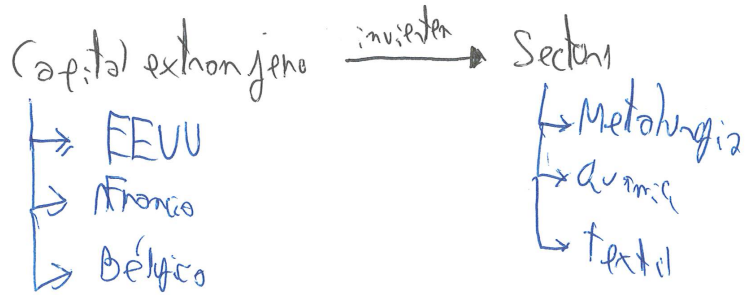 Capital extranjero invierten Sectors
EEUU
Francia
Bélgica
Metalurgia
Química
textil